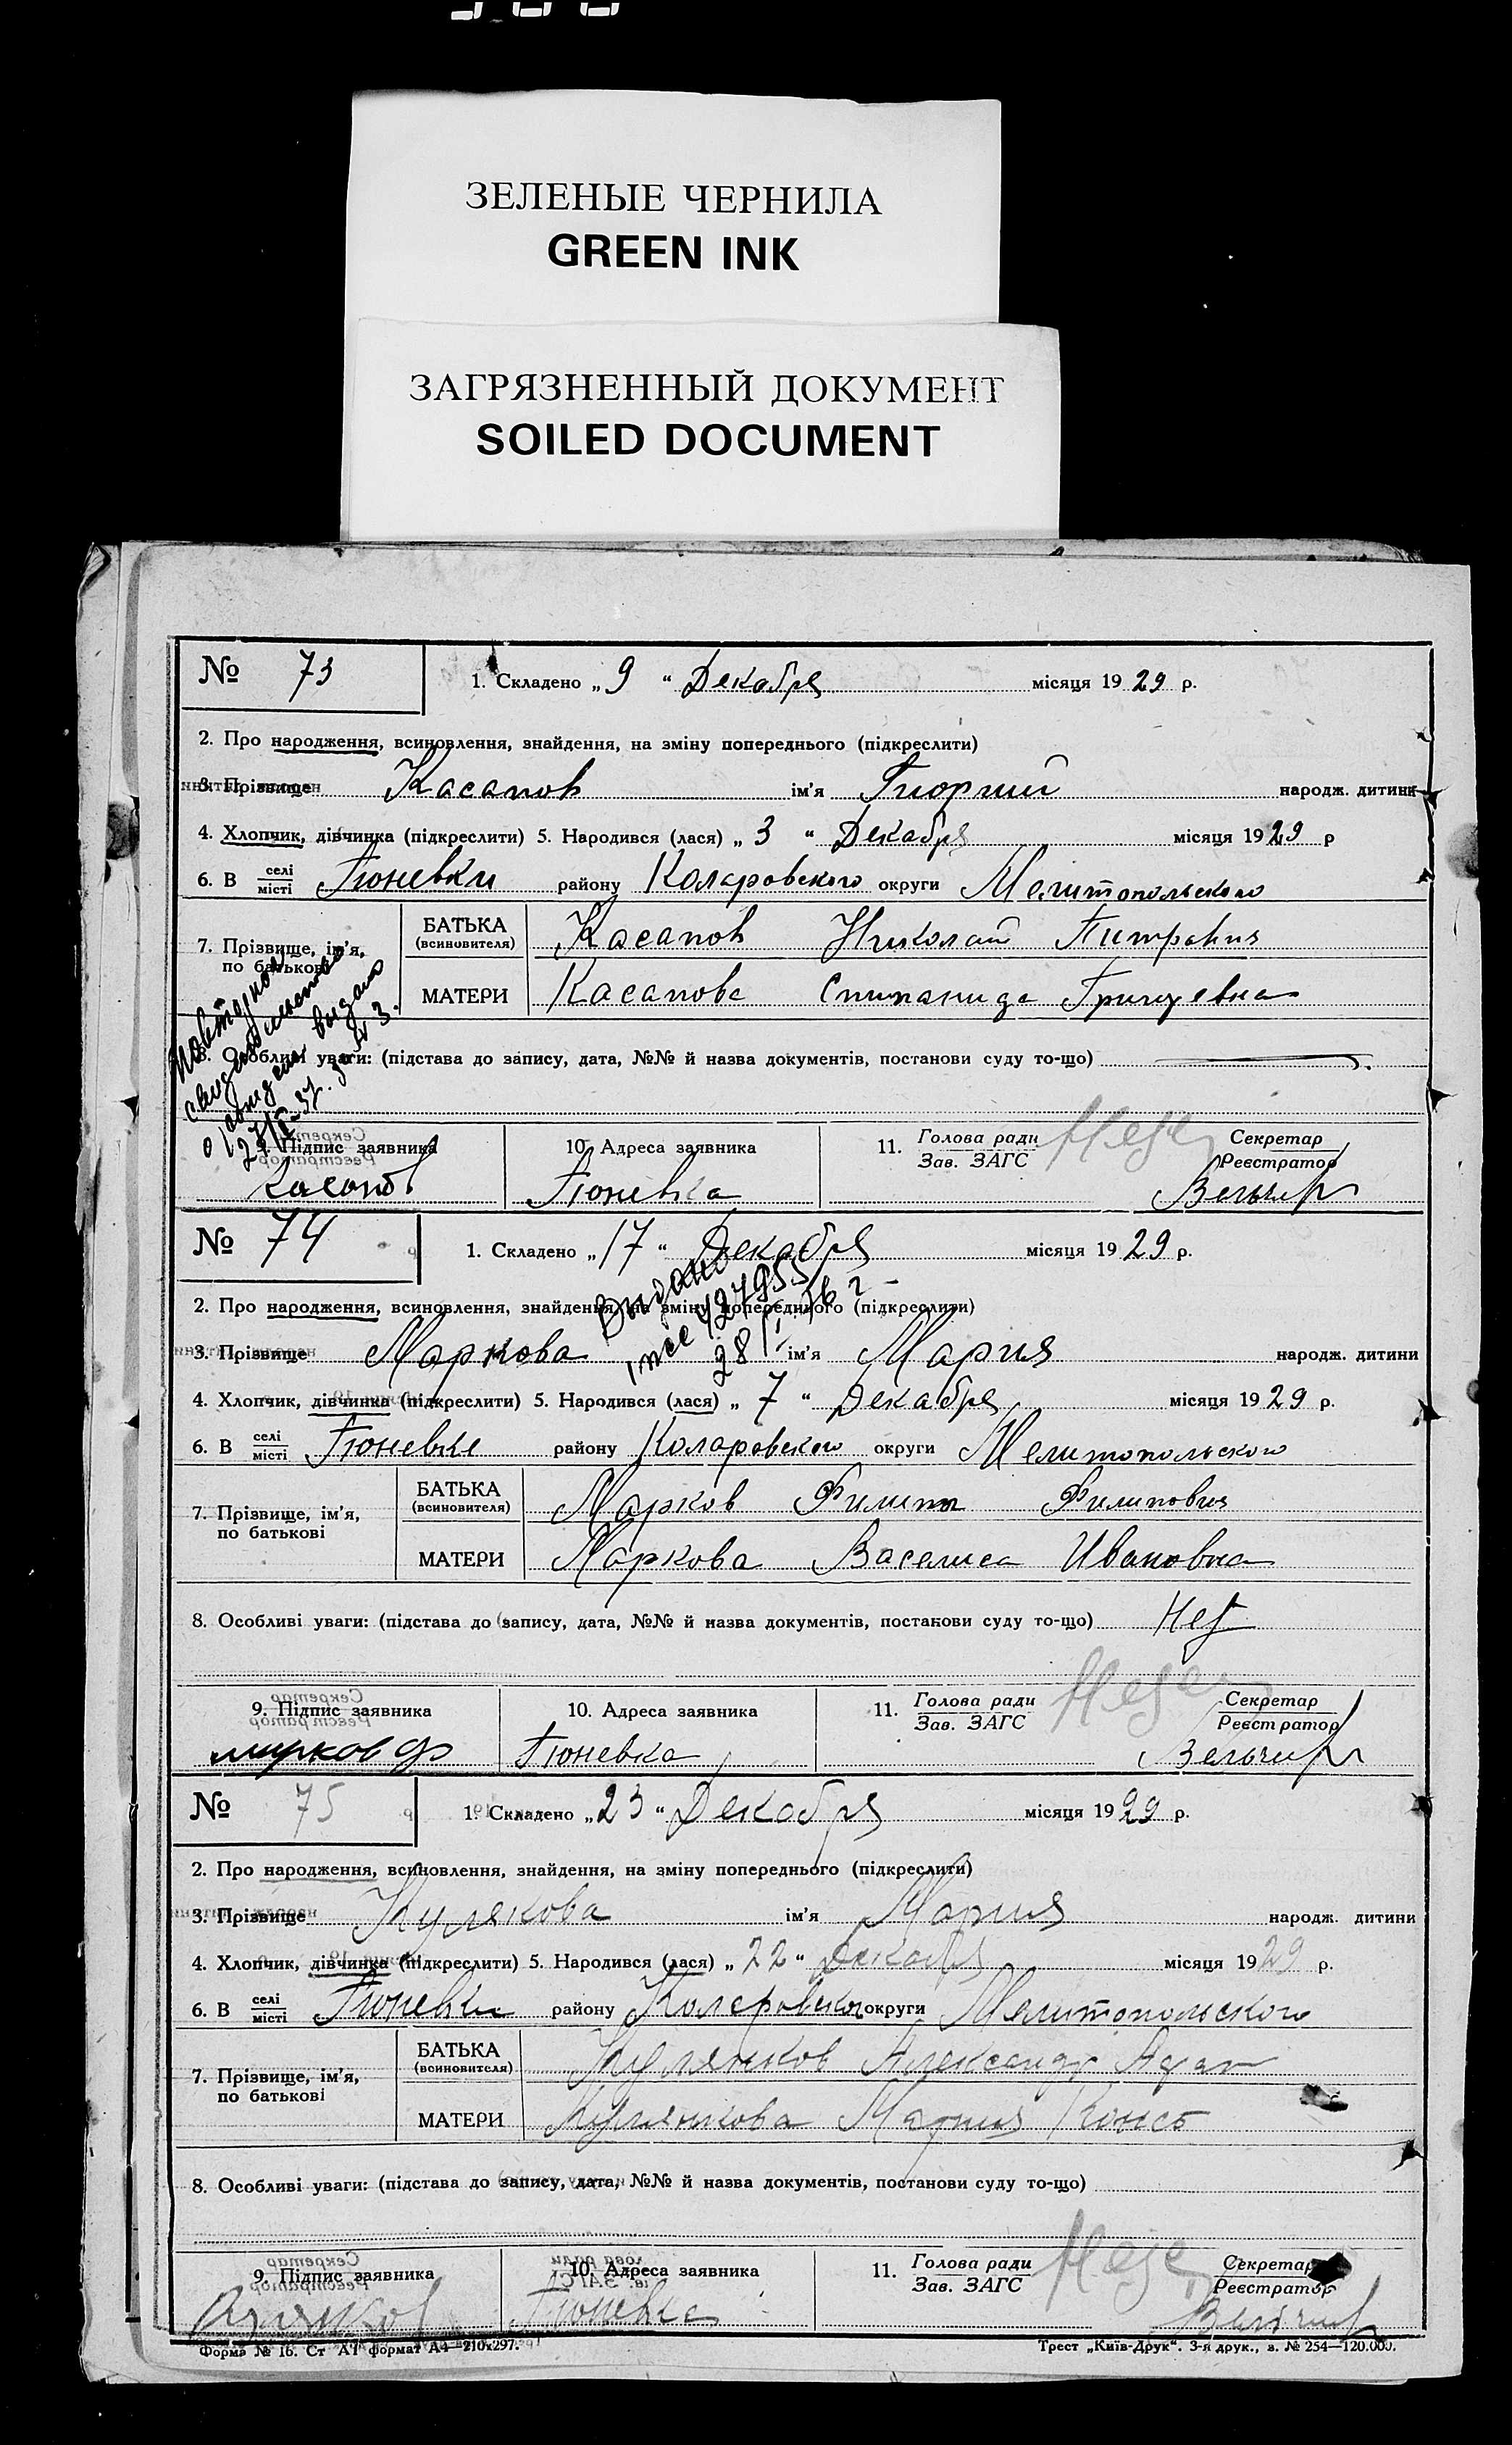 ЗЕЛЕНЫЕ ЧЕРНИЛА
GREEN INK
ЗАГРЯЗНЕННЫЙ ДОКУМЕНТ
SOILED DOCUMENT
№ 73
1. Складено „ 9 “ Декабря місяця 1929 р.
2. Про народження, всиновлення, знайдення, на зміну попереднього (підкреслити)
3. Прізвище Касапов ім'я Гиоргий народж. дитини
4. Хлопчик, дівчинка (підкреслити) 5. Народився (лася) „ 3 “ Декабря місяця 1929 р
6. В селі місті Тюневки району Коларовского округи Мелитопольского
7. Прізвище, ім'я, по батькові
БАТЬКА (всиновителя) Касапов Николай Питровия
МАТЕРИ Касапова Стипанида
Повторное
свидетельство
выдано
27/I-37. № 3.
8. Особливі уваги: (підстава до запису, дата, №№ й назва документів, постанови суду то-що)
9. Підпис заявника 10. Адреса заявника 11. Голова ради Зав. ЗАГС Секретар Реєстратор
Касапов Тюневка
№ 74
1. Складено „ 17 “ Декабря місяця 1929 р.
Выдано
427955
28/I 36 г
2. Про народження, всиновлення, знайдення, на зміну попереднього (підкреслити)
3. Прізвище Маркова ім'я Мария народж. дитини
4. Хлопчик, дівчинка (підкреслити) 5. Народився (лася) „ 7 “ Декабря місяця 1929 р.
6. В селі місті Тюневке району Коларовского округи Мелитопольского
7. Прізвище, ім'я, по батькові
БАТЬКА (всиновителя) Марков Филипп Филипович
МАТЕРИ Маркова Васелиса Ивановна
8. Особливі уваги: (підстава до запису, дата, №№ й назва документів, постанови суду то-що) Нет
9. Підпис заявника 10. Адреса заявника 11. Голова ради Зав. ЗАГС Секретар Реєстратор
марков ф Тюневка
№ 75
1. Складено „ 23 “ Декабря місяця 1929 р.
2. Про народження, всиновлення, знайдення, на зміну попереднього (підкреслити)
3. Прізвище Кулякова ім'я Мария народж. дитини
4. Хлопчик, дівчинка (підкреслити) 5. Народився (лася) „ 22 “ Декабря місяця 1929 р.
6. В селі місті Тюневки району Коларовского округи Мелитопольского
7. Прізвище, ім'я, по батькові
БАТЬКА (всиновителя) Александр
МАТЕРИ Мария Конст
8. Особливі уваги: (підстава до запису, дата, №№ й назва документів, постанови суду то-що)
9. Підпис заявника 10. Адреса заявника 11. Голова ради Зав. ЗАГС Секретар Реєстратор
Тюневка
Форма № 16. Ст А1 формат А4—210x297.
Трест „Київ-Друк“. 3-я друк., з. № 254—120.000.